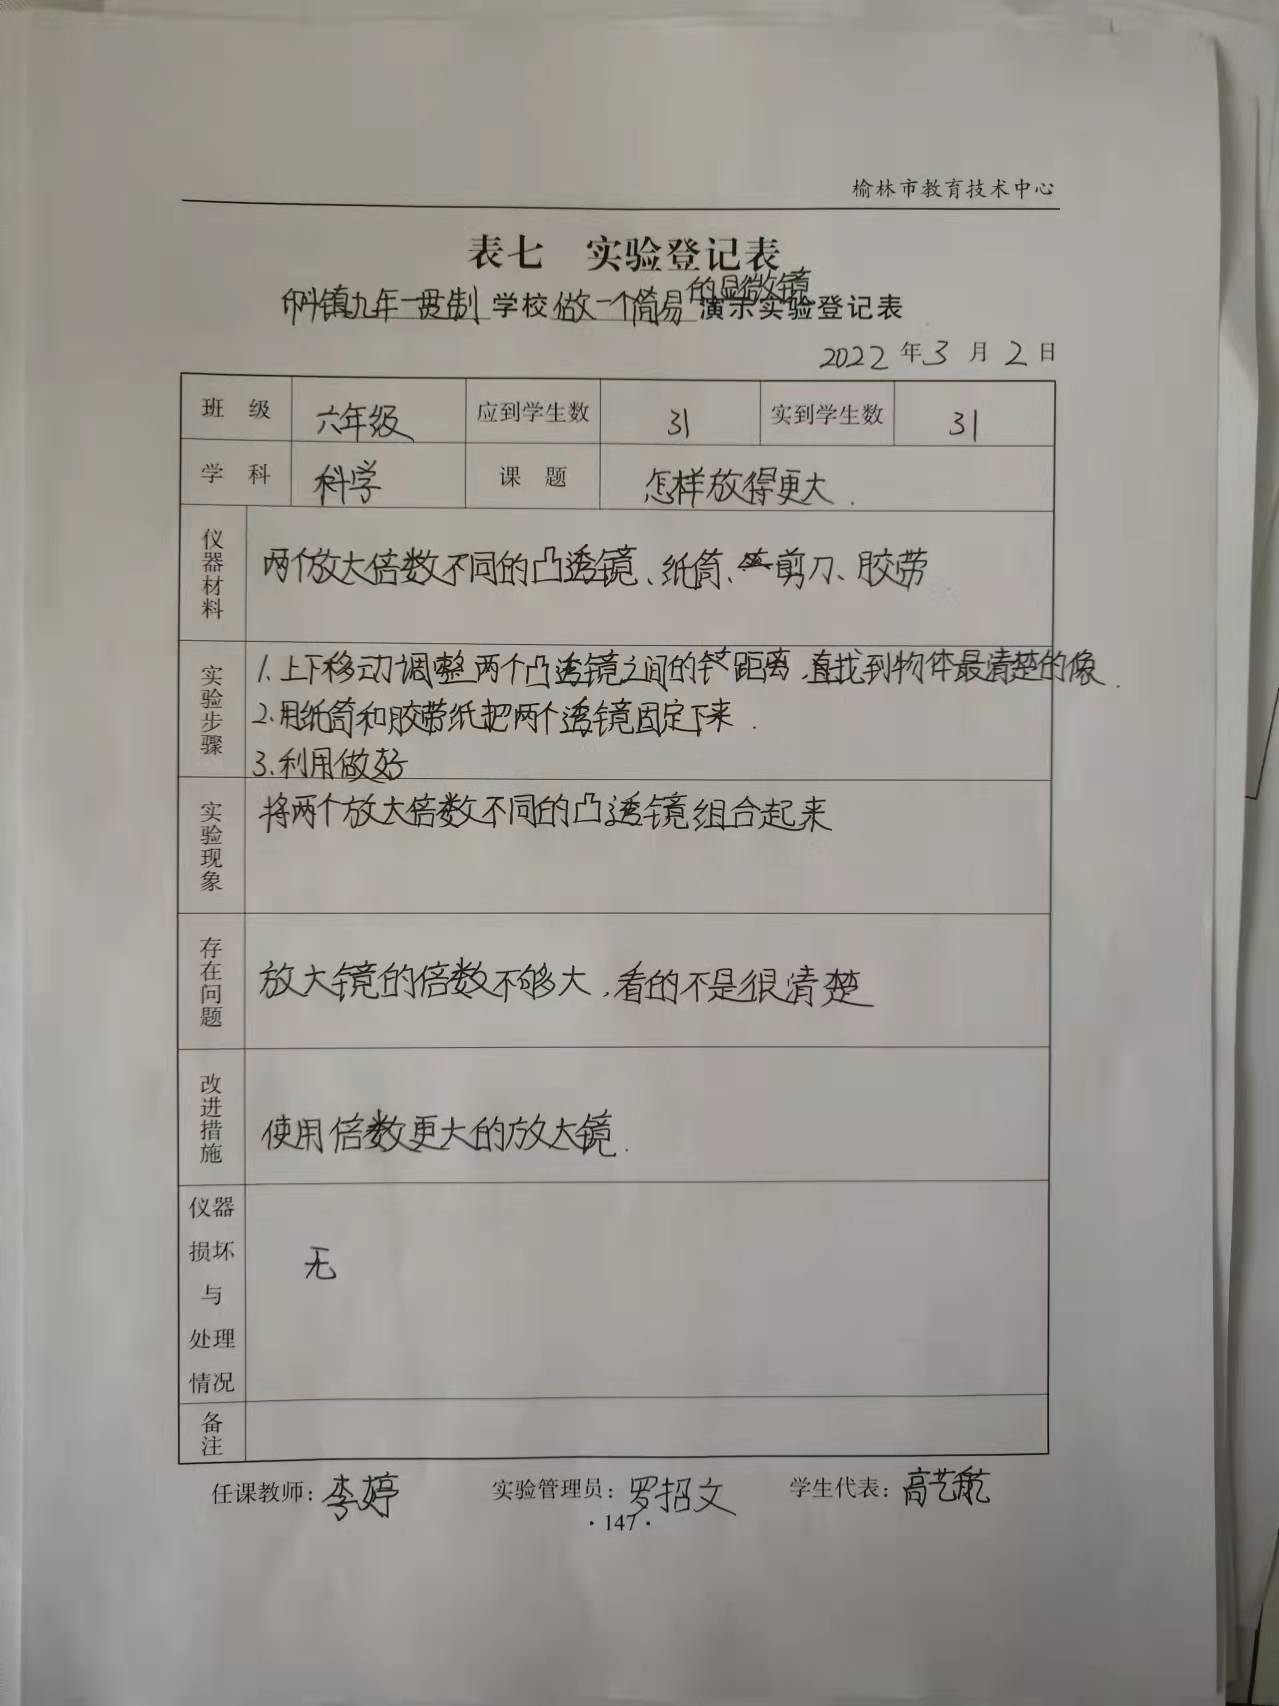 榆林市教育技术中心
表七 实验登记表
的显微镜
镇九年一贯制学校做一个简易演示实验登记表
2022年3月2日
班级 六年级 应到学生数 31 实到学生数 31
学科 科学 课题 怎样放得更大.
仪器材料 两个放大倍数不同的凸透镜、纸筒、剪刀、胶带
实验步骤
1.上下移动调整两个凸透镜之间的距离,直找到物体最清楚的像.
2.用纸筒和胶带纸把两个透镜固定下来.
3.利用做好
实验现象 将两个放大倍数不同的凸透镜组合起来
存在问题 放大镜的倍数不够大,看的不是很清楚
改进措施 使用倍数更大的放大镜.
仪器损坏与处理情况 无
备注
任课教师:李婷 实验管理员:罗招文 学生代表:高艺航
·147·